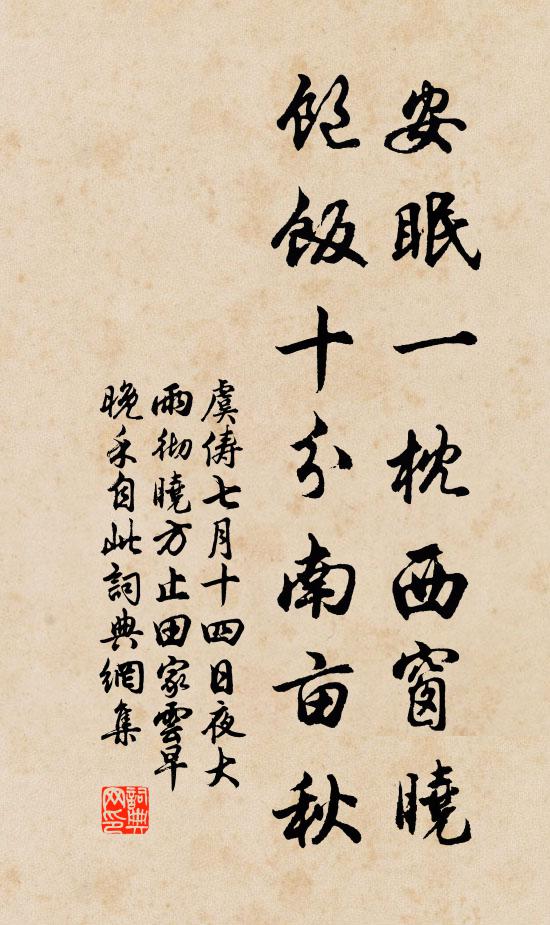 安眠一枕西窗曉
飽飯十分南亩秋
虞儔七月十四日夜大
雨彻曉方止田家雲早
晚禾自此詞典網集
詞典
网印